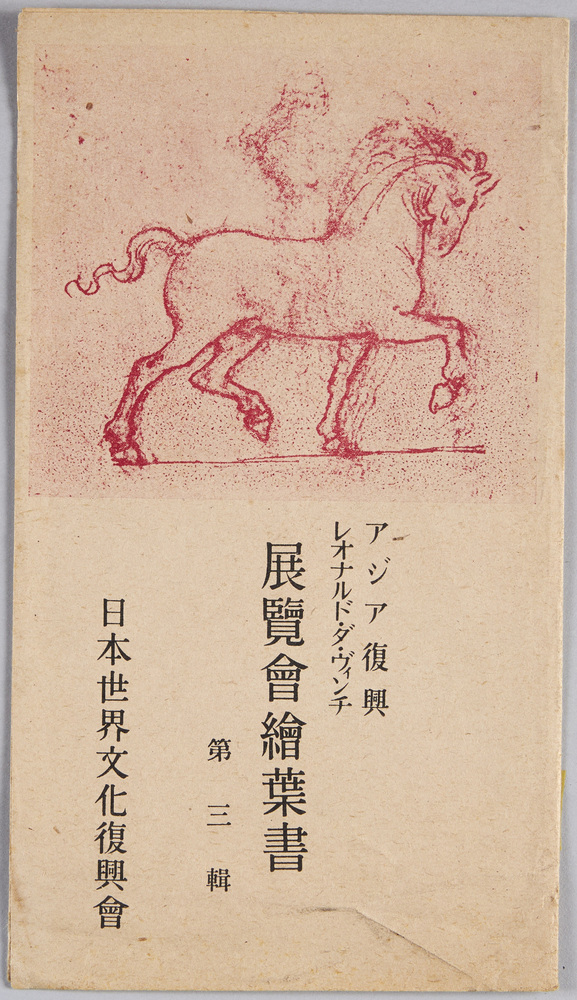 アジア復興
レオナルド・ダ・ヴィンチ
展覽會繪葉書
第三輯
日本世界文化復興會